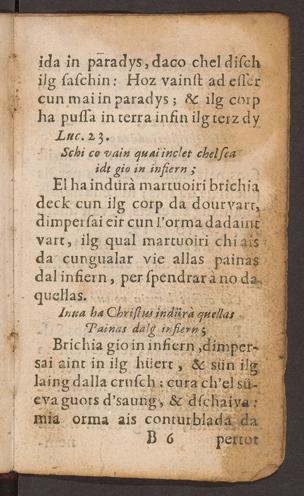 ida in paradys, daco chel disch
ilg saschin: Hoz vainst ad esser
cun mai in paradys; & ilg corp
ha pussa in terra infin ilg terz dy
Luc. 23.
Schi co vain quai inclet chel sea
idt gio in infiern;
El ha indürà martuoiri brichia
deck cun ilg corp da dourvart,
dimpersai eir cun l'orma dadaint
vart, ilg qual martuoiri chi ais
da cungualar vie allas painas
dal infiern, per spendrar à no da
quellas.
Inua ha Christus indürà quellas
Painas dalg infiern;
Brichia gio in infiern, dimper-
sai aint in ilg hüert, & sün ilg
laing dalla crusch: cura ch'el sü-
eva guots d'saung, & dschaiva:
mia orma ais conturblada da
B 6 pertot